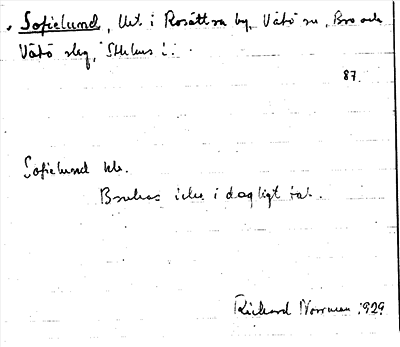 Sofielund, lht. i Rosättra by, Vätö sn, Bro och
Vätö slg, Sthlms l.
87.
Sofielund
Brukas icke i dagligt tal.
Richard Norrman 1929